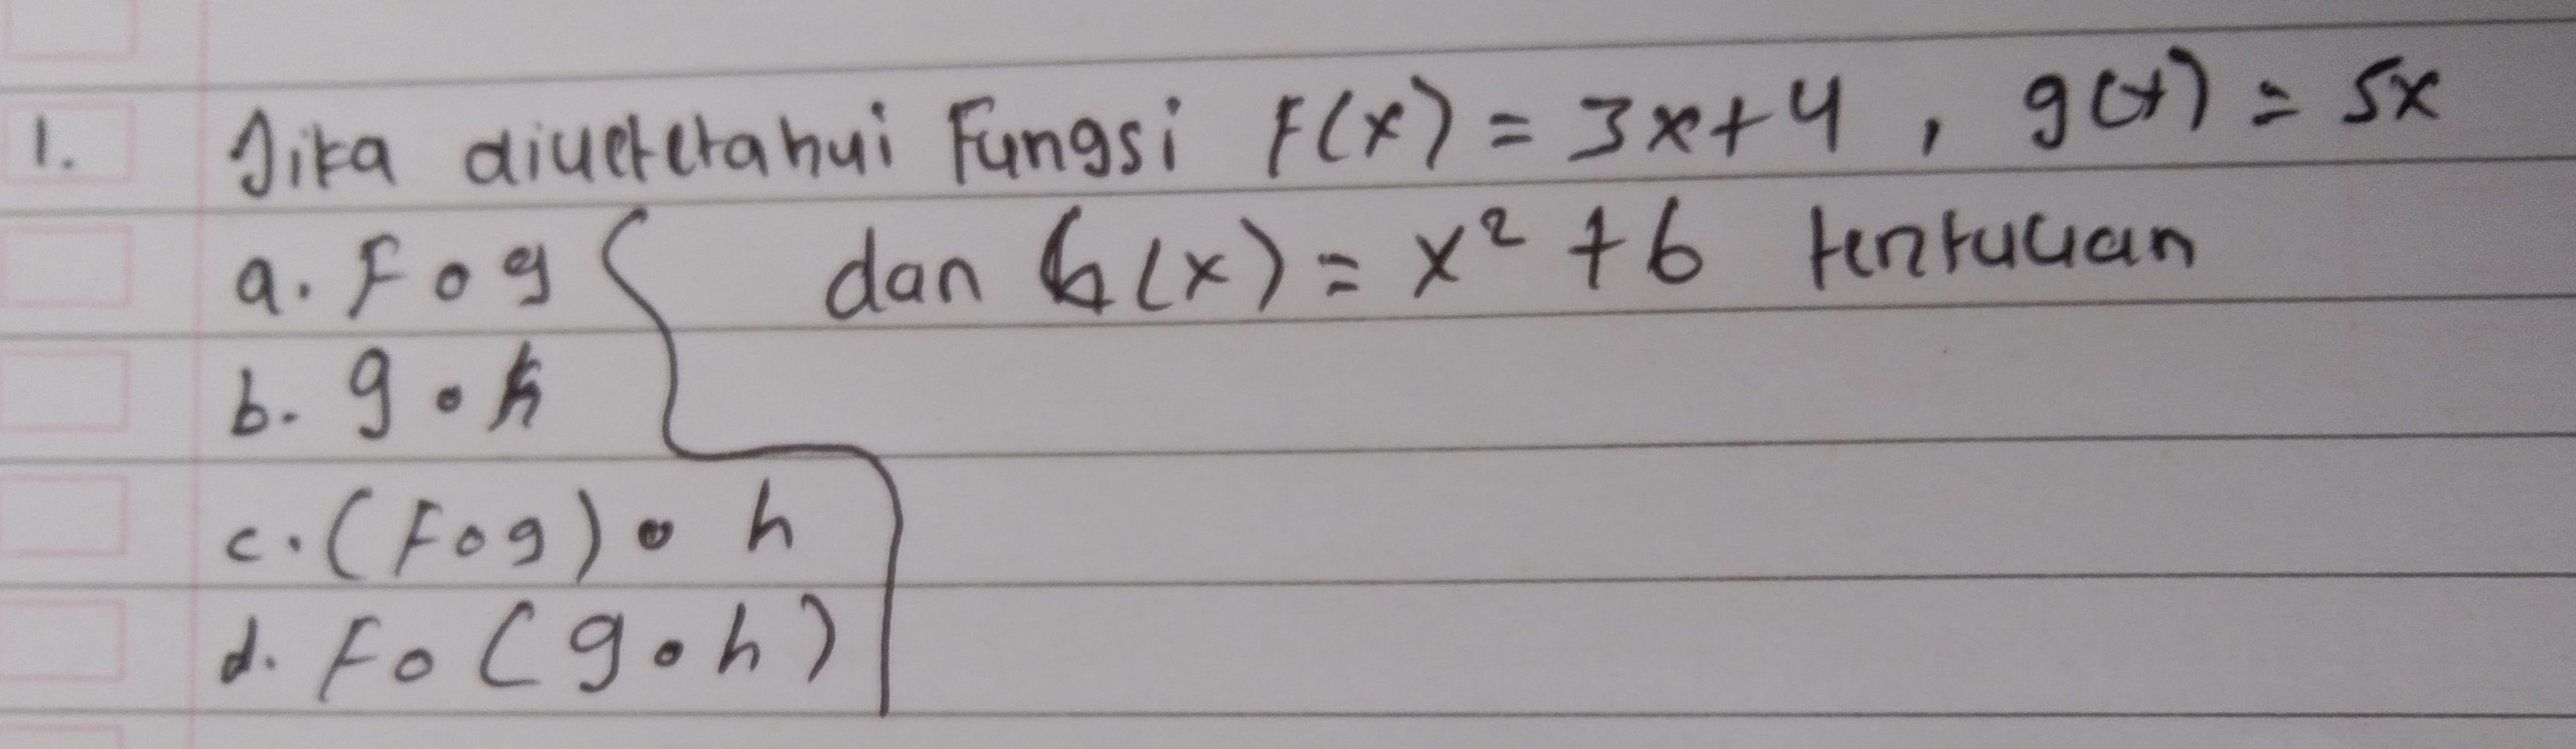 1. Jika diketetahui Fungsi F(x) = 3x+4, g(x) = 5x
dan h(x) = x² + 6 tentukan
a. F o g
b. g o h
c. (F o g) o h
d. F o (g o h)